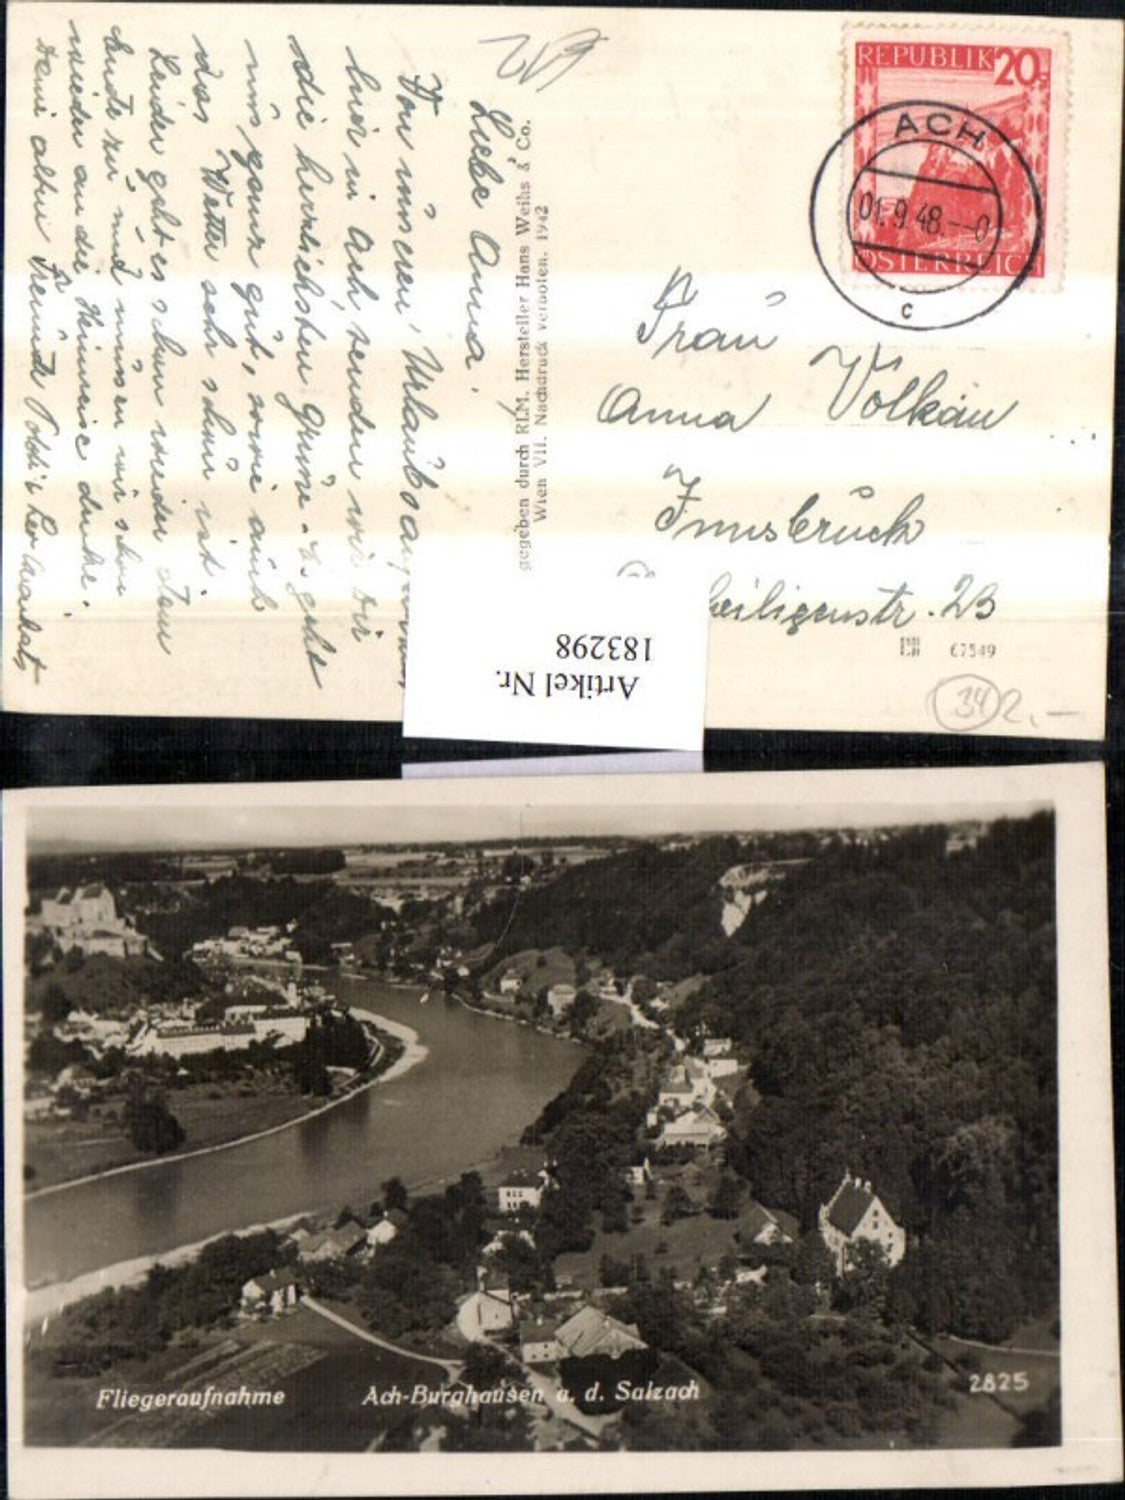 Liebe Anna!
Von unserem Urlaubs
hier in Ach, senden wir Dir
die herzlichsten Grüsse. Es geht
uns ganz gut, sowie auch
das Wetter sehr schön ist.
Leider geht es schon wieder dem
Ende zu und müssen wir schon
wieder an die Heimreise denken.
Deine alten Freunde
gegeben durch RLM. Hersteller Hans Weihs & Co.
Wien VII. Nachdruck verboten. 1942
REPUBLIK 20
ÖSTERREICH
ACH
01.9.48.--0
c
Frau
Anna Volkau
Innsbruck
heiligenstr. 23
67549
342.—
Artikel Nr.
183298
Fliegeraufnahme Ach-Burghausen a. d. Salzach 2825